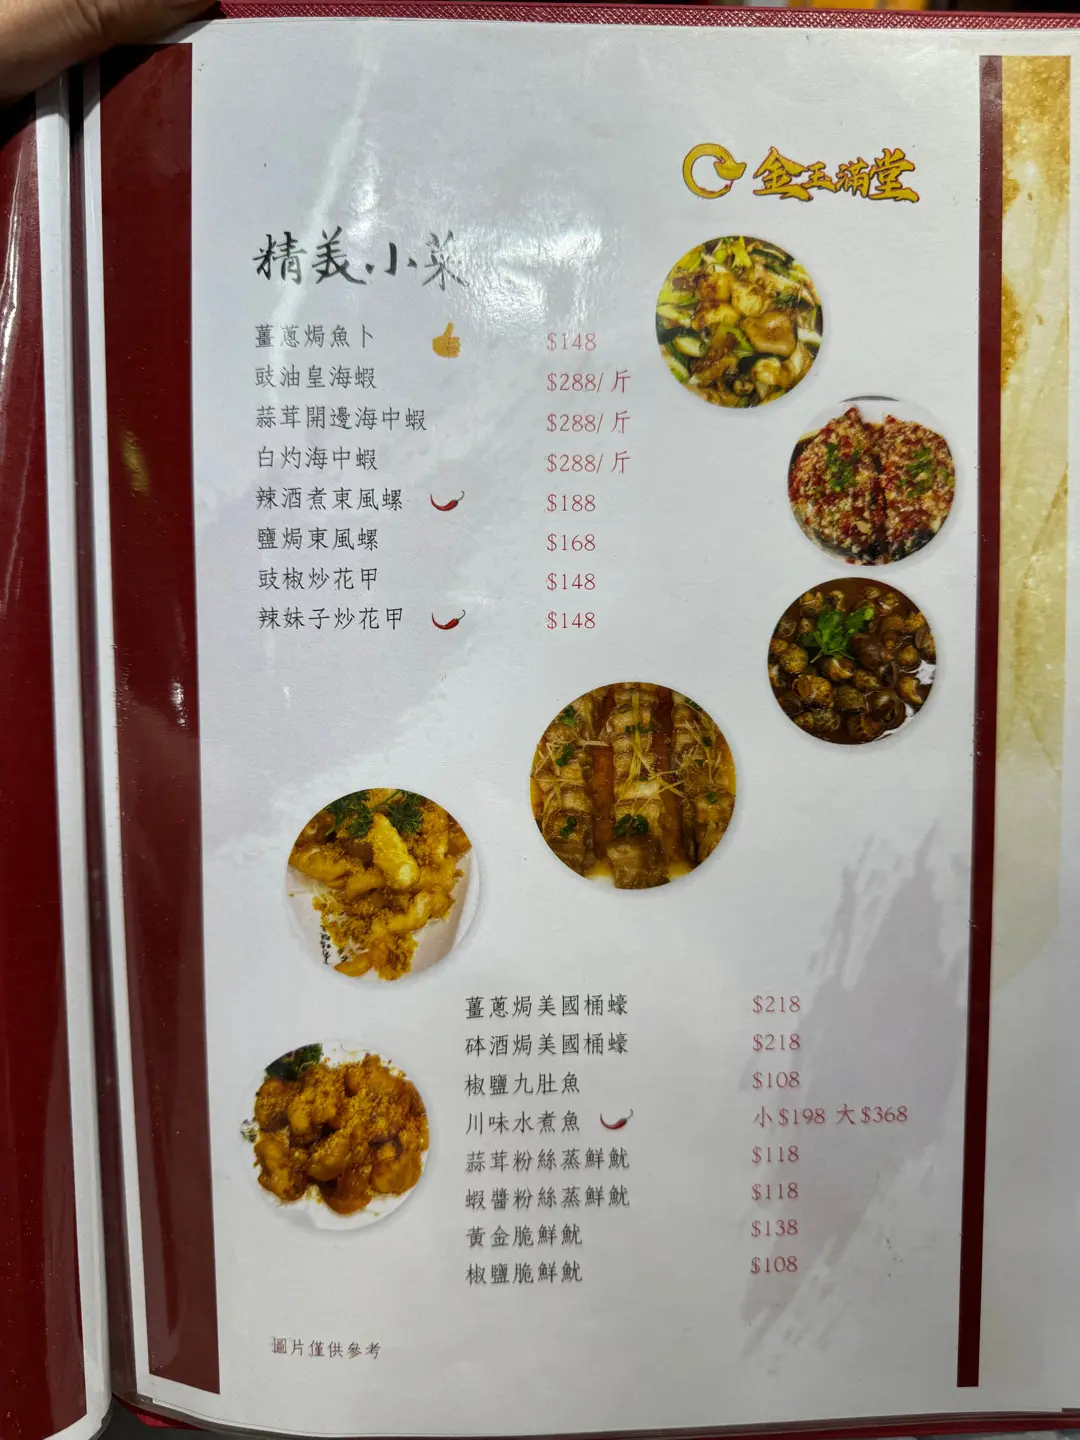 金玉滿堂
精美小菜
薑蔥焗魚卜 $148
豉油皇海蝦 $288/斤
蒜茸開邊海中蝦 $288/斤
白灼海中蝦 $288/斤
辣酒煮東風螺 $188
鹽焗東風螺 $168
豉椒炒花甲 $148
辣妹子炒花甲 $148
薑蔥焗美國桶蠔 $218
砵酒焗美國桶蠔 $218
椒鹽九肚魚 $108
川味水煮魚 小$198 大$368
蒜茸粉絲蒸鮮魷 $118
蝦醬粉絲蒸鮮魷 $118
黃金脆鮮魷 $138
椒鹽脆鮮魷 $108
圖片僅供參考